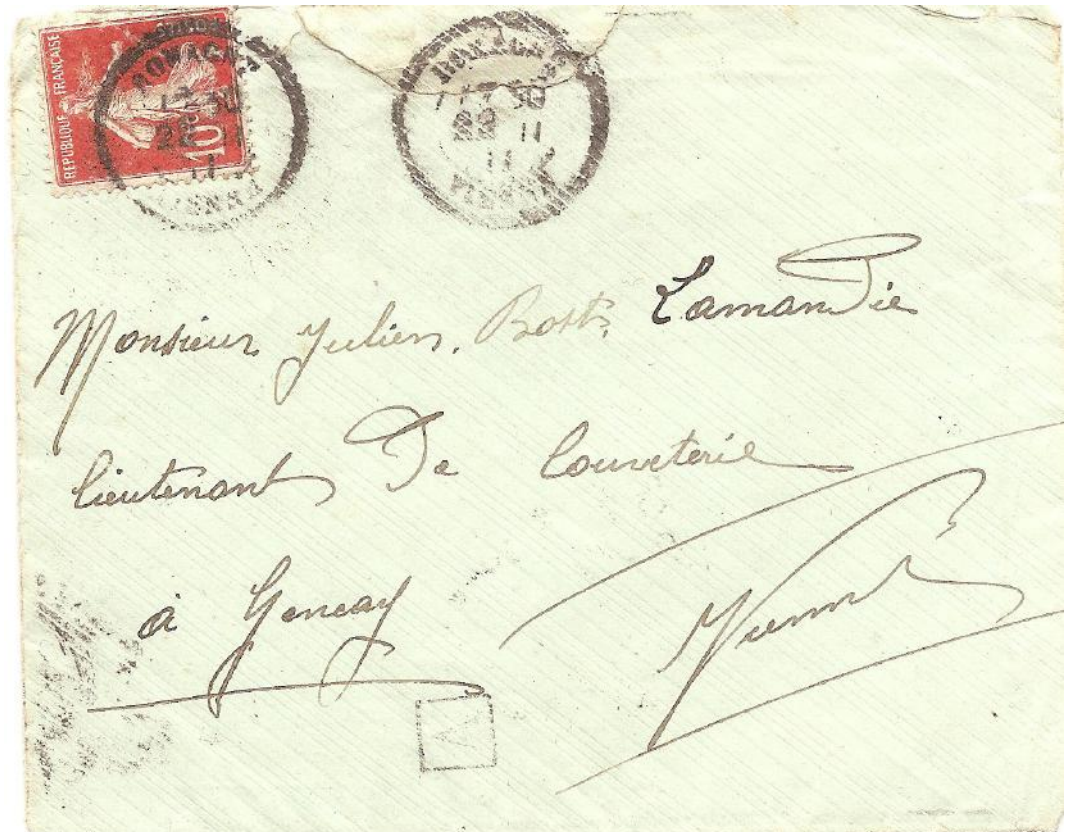 REPUBLIQUE FRANÇAISE
10c
ROMAGNE
22
11
VIENNE
ROMAGNE
22 11
11
VIENNE
Monsieur Julien. Bost. Lamandie
lieutenant De Louveterie
à Gençay
Vienne
A